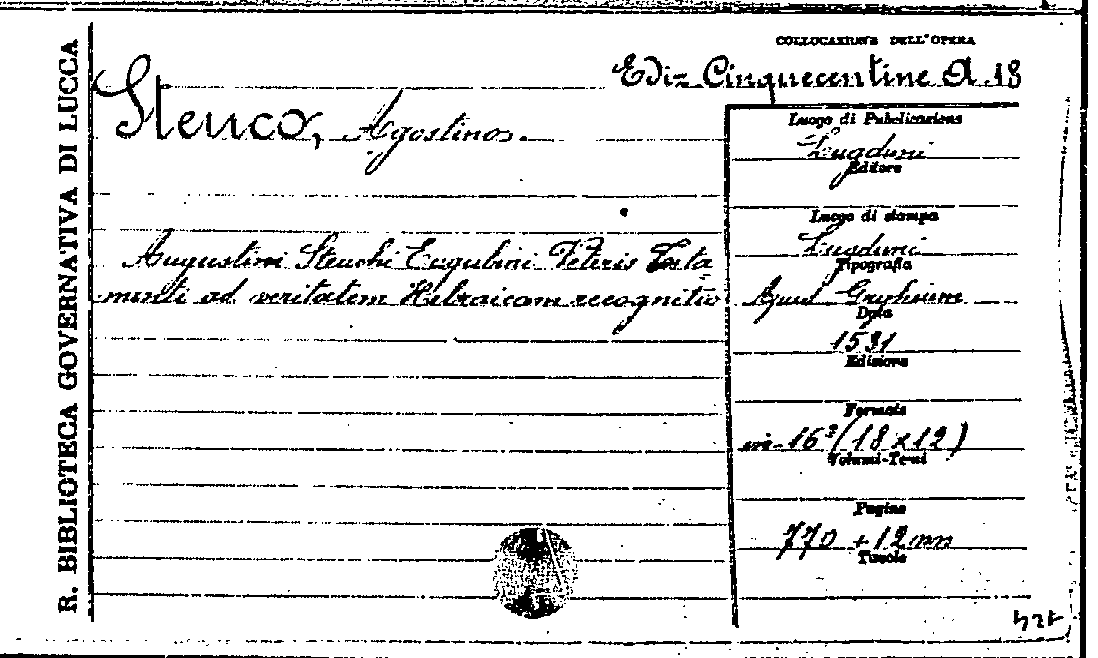 R. BIBLIOTECA GOVERNATIVA DI LUCCA
COLLOCAZIONE DELL'OPERA
Ediz. Cinquecentine A. 18
Steuco, Agostinos.
Augustini Steuchi Eugubini Veteris Testa
menti ad veritatem Hebraicam recognitio
Luogo di Pubblicazione
Lugduni
Editore
Luogo di stampa
Lugduni
Tipografia
Apud Gryphium
Data
1531
Edizione
Formato
in-16º (18 x 12)
Volumi-Tomi
Pagine
770 + 12 nn
Tavole
424